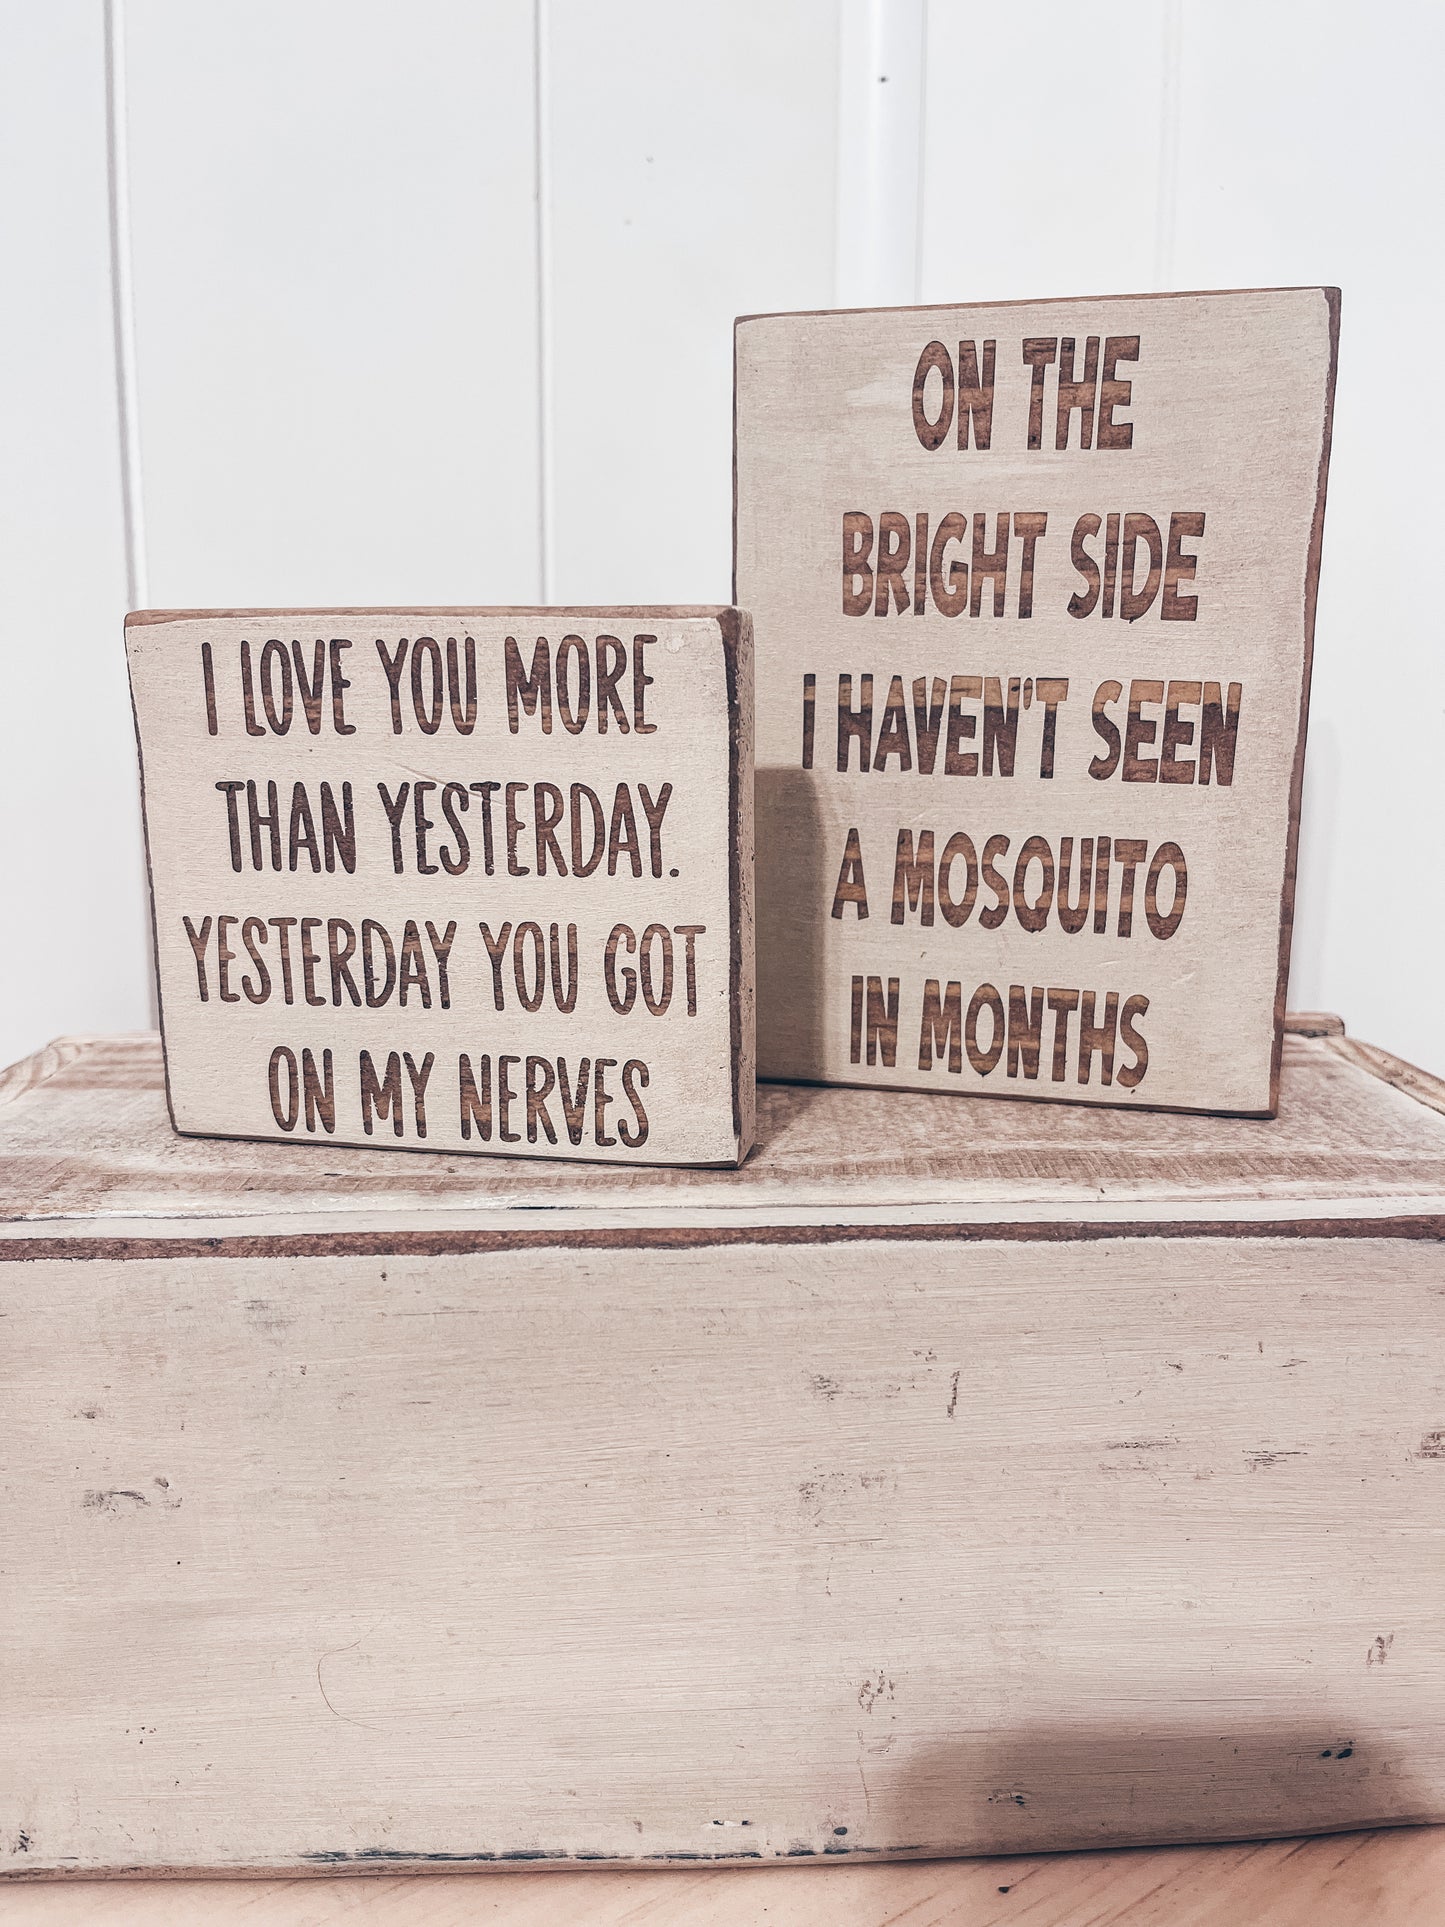 I LOVE YOU MORE
THAN YESTERDAY.
YESTERDAY YOU GOT
ON MY NERVES
ON THE
BRIGHT SIDE
I HAVEN'T SEEN
A MOSQUITO
IN MONTHS